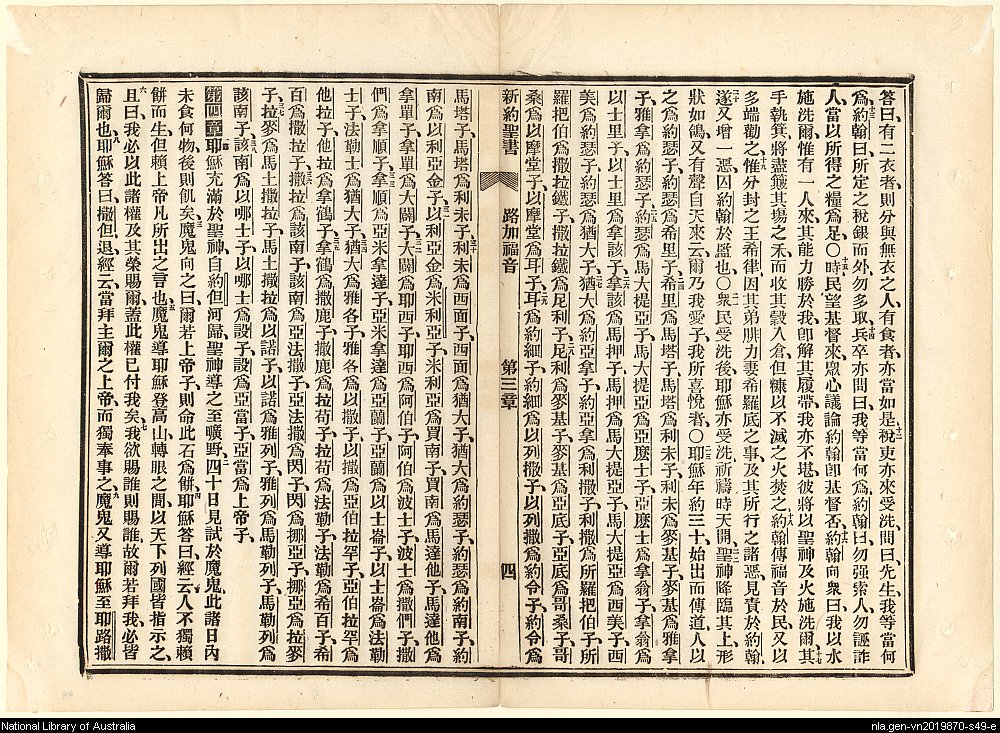 答曰有二衣者則分與無衣之人有食者亦當如是十二稅吏亦來受洗問曰先生我等當何
爲十三約翰曰所定之稅銀而外勿多取十四兵卒亦問曰我等當何爲約翰曰勿强索人勿誣詐
人當以所得之糧爲足〇十五時民望基督來衆心議論約翰卽基督否十六約翰向衆曰我以水
施洗爾惟有一人來其能力勝於我卽解其履帶我亦不堪彼將以聖神及火施洗爾十七其
手執箕將盡簸其塲之禾而收其穀入倉但糠以不滅之火焚之十八約翰傳福音於民又以
多端勸之十九惟分封之王希律因其弟腓力妻希羅底之事及其所行之諸惡見責於約翰
二十遂又增一惡囚約翰於監也〇二一衆民受洗後耶穌亦受洗祈禱時天開二二聖神降臨其上形
狀如鴿又有聲自天來云爾乃我愛子我所喜悅者〇二三耶穌年約三十始出而傳道人以
之爲約瑟子約瑟爲希里子二四希里爲馬塔子馬塔爲利未子利未爲麥基子麥基爲雅拿
子雅拿爲約瑟子二五約瑟爲馬大提亞子馬大提亞爲亞麼士子亞麼士爲拿翁子拿翁爲
以士里子以士里爲拿該子二六拿該爲馬押子馬押爲馬大提亞子馬大提亞爲西美子西
美爲約瑟子約瑟爲猶大子二七猶大爲約亞拿子約亞拿爲利撒子利撒爲所羅把伯子所
羅把伯爲撒拉鐵子撒拉鐵爲足利子二八足利爲麥基子麥基爲亞底子亞底爲哥桑子哥
桑爲以摩堂子以摩堂爲耳子二九耳爲約細子約細爲以列撒子以列撒爲約令子約令爲
新約聖書 路加福音 第三章 四
馬塔子馬塔爲利未子三十利未爲西面子西面爲猶大子猶大爲約瑟子約瑟爲約南子約
南爲以利亞金子三一以利亞金爲米利亞子米利亞爲買南子買南爲馬達他子馬達他爲
拿單子拿單爲大闢子三二大闢爲耶西子耶西爲阿伯子阿伯爲波士子波士爲撒們子撒
們爲拿順子三三拿順爲亞米拿達子亞米拿達爲亞蘭子亞蘭爲以士崙子以士崙爲法勒
士子法勒士爲猶大子三四猶大爲雅各子雅各爲以撒子以撒爲亞伯拉罕子亞伯拉罕爲
他拉子他拉爲拿鶴子三五拿鶴爲撒鹿子撒鹿爲拉苟子拉苟爲法勒子法勒爲希百子希
百爲撒拉子三六撒拉爲該南子該南爲亞法撒子亞法撒爲閃子閃爲挪亞子挪亞爲拉麥
子三七拉麥爲馬土撒拉子馬土撒拉爲以諾子以諾爲雅列子雅列爲馬勒列子馬勒列爲
該南子三八該南爲以哪士子以哪士爲設子設爲亞當子亞當爲上帝子
第四章一耶穌充滿於聖神自約但河歸聖神導之至曠野二四十日見試於魔鬼此諸日內
未食何物後則飢矣三魔鬼向之曰爾若上帝子則命此石爲餅四耶穌答曰經云人不獨賴
餅而生但賴上帝凡所出之言也五魔鬼導耶穌登高山轉眼之間以天下列國皆指示之
六且曰我必以此諸權及其榮賜爾蓋此權已付我矣我欲賜誰則賜誰七故爾若拜我必皆
歸爾也八耶穌答曰撒但退經云當拜主爾之上帝而獨奉事之九魔鬼又導耶穌至耶路撒
National Library of Australia
nla.gen-vn2019870-s49-e